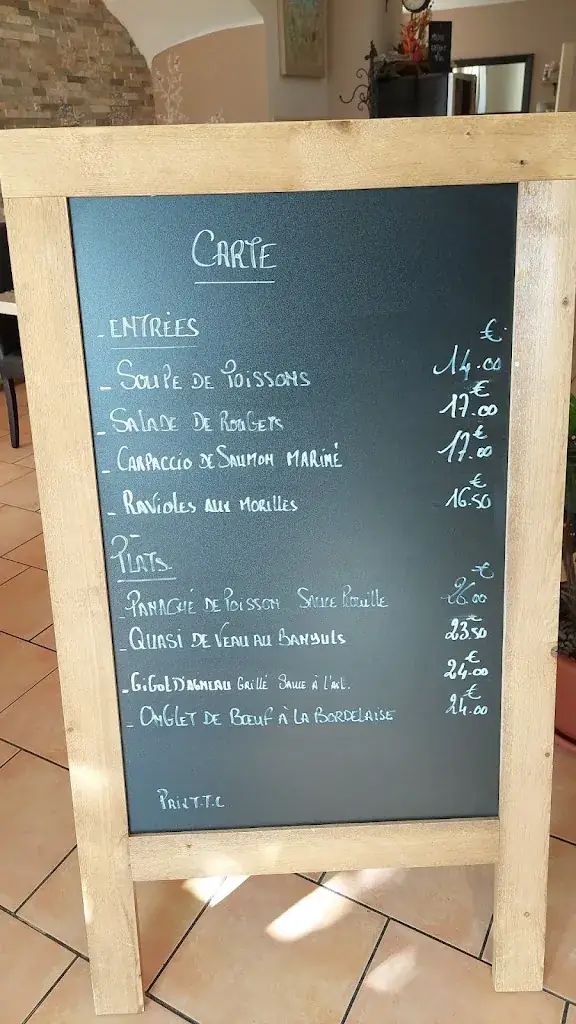 CARTE
- ENTRÉES €
- SOUPE DE POISSONS 14.00
- SALADE DE ROUGETS € 17.00
- CARPACCIO DE SAUMON MARINÉ € 17.00
- RAVIOLES AUX MORILLES € 16.50
PLATS €
- PANACHÉ DE POISSON SAUCE ROUILLE 26.00
- QUASI DE VEAU AU BANYULS 23.50
- GIGOT D'AGNEAU GRILLÉ SAUCE À L'AIL. € 24.00
- ONGLET DE BŒUF À LA BORDELAISE € 24.00
PRIX T.T.C